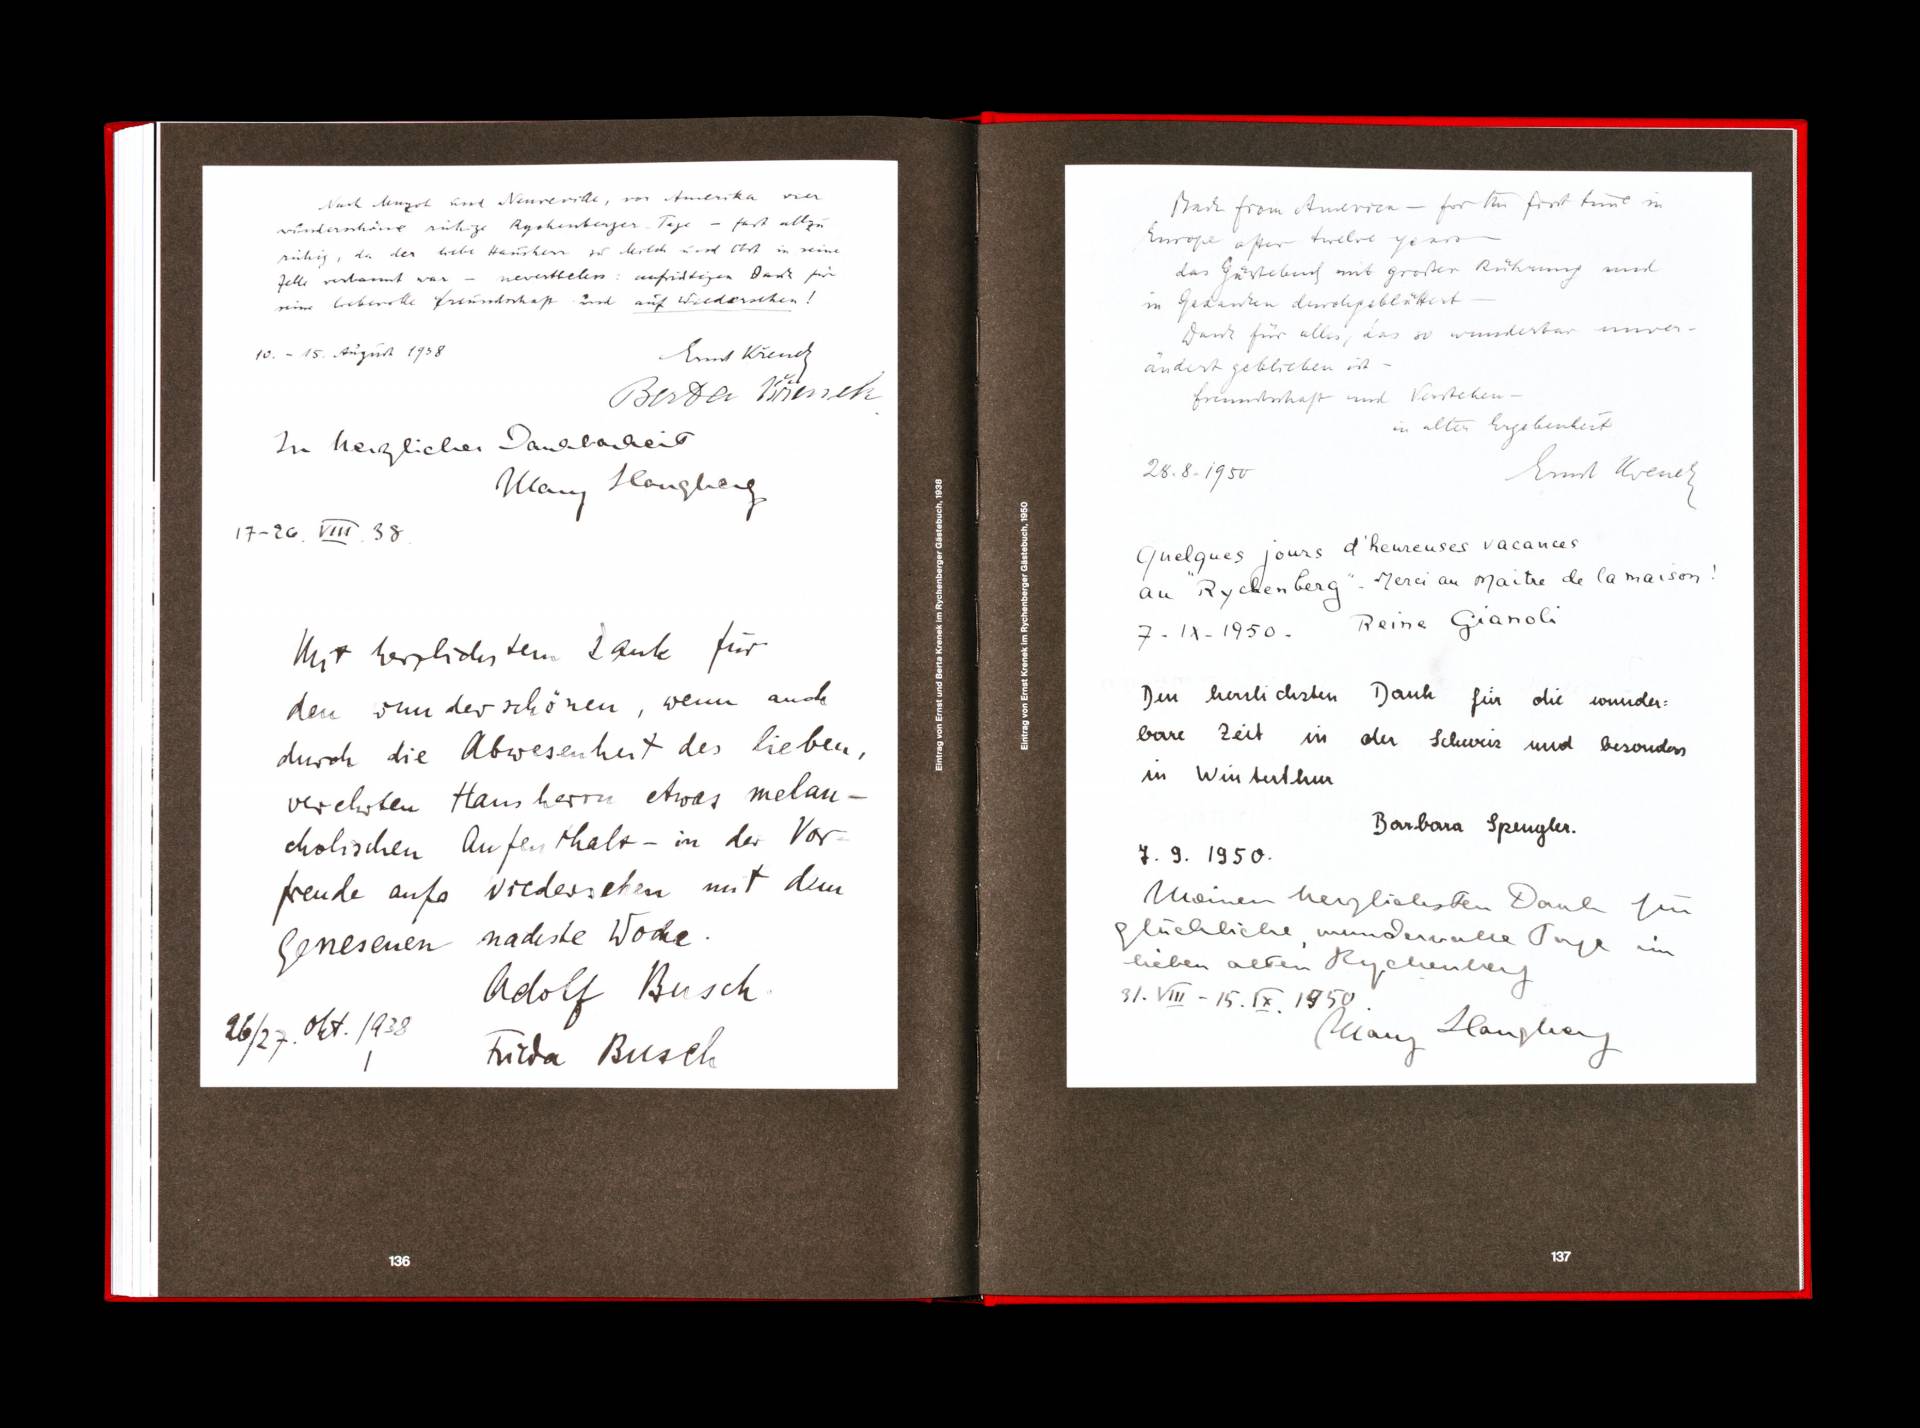 Nach Muzot und Neuveville, vor Amerika vier
wunderschöne ruhige Rychenberger Tage – fast allzu
ruhig, da der liebe Hausherr zu Milch und Obst in seine
Zelle verbannt war – nevertheless: aufrichtigen Dank für
seine liebevolle Freundschaft und auf Wiedersehen!
10. – 15. August 1938
Ernst Krenek
Berta Křenek
In herzlicher Dankbarkeit
17–26. VIII. 38.
Mit herzlichstem Dank für
den wunderschönen, wenn auch
durch die Abwesenheit des lieben,
verehrten Hausherrn etwas melan–
cholischen Aufenthalt – in der Vor–
freude aufs Wiedersehen mit dem
Genesenen nächste Woche.
Adolf Busch
26/27. Okt. 1938
Frieda Busch
Eintrag von Ernst und Berta Krenek im Rychenberger Gästebuch, 1938
136
Eintrag von Ernst Krenek im Rychenberger Gästebuch, 1950
Back from America – for the first time in
Europe after twelve years –
das Gästebuch mit großer Rührung und
in Gedanken durchgeblättert –
Dank für alles, das so wunderbar unver–
ändert geblieben ist –
Freundschaft und Verstehen –
in alter Ergebenheit
28.8.1950
Ernst Krenek
Quelques jours d'heureuses vacances
au "Rychenberg" – Merci au Maître de la maison!
7–IX–1950.
Reine Gianoli
Den herzlichsten Dank für die wunder:
bare Zeit in der Schweiz und besonders
in Winterthur
Barbara Spengler.
7. 9. 1950.
Meinen herzlichsten Dank für
glückliche, wundervolle Tage im
lieben alten Rychenberg
31. VIII – 15. IX. 1950.
137